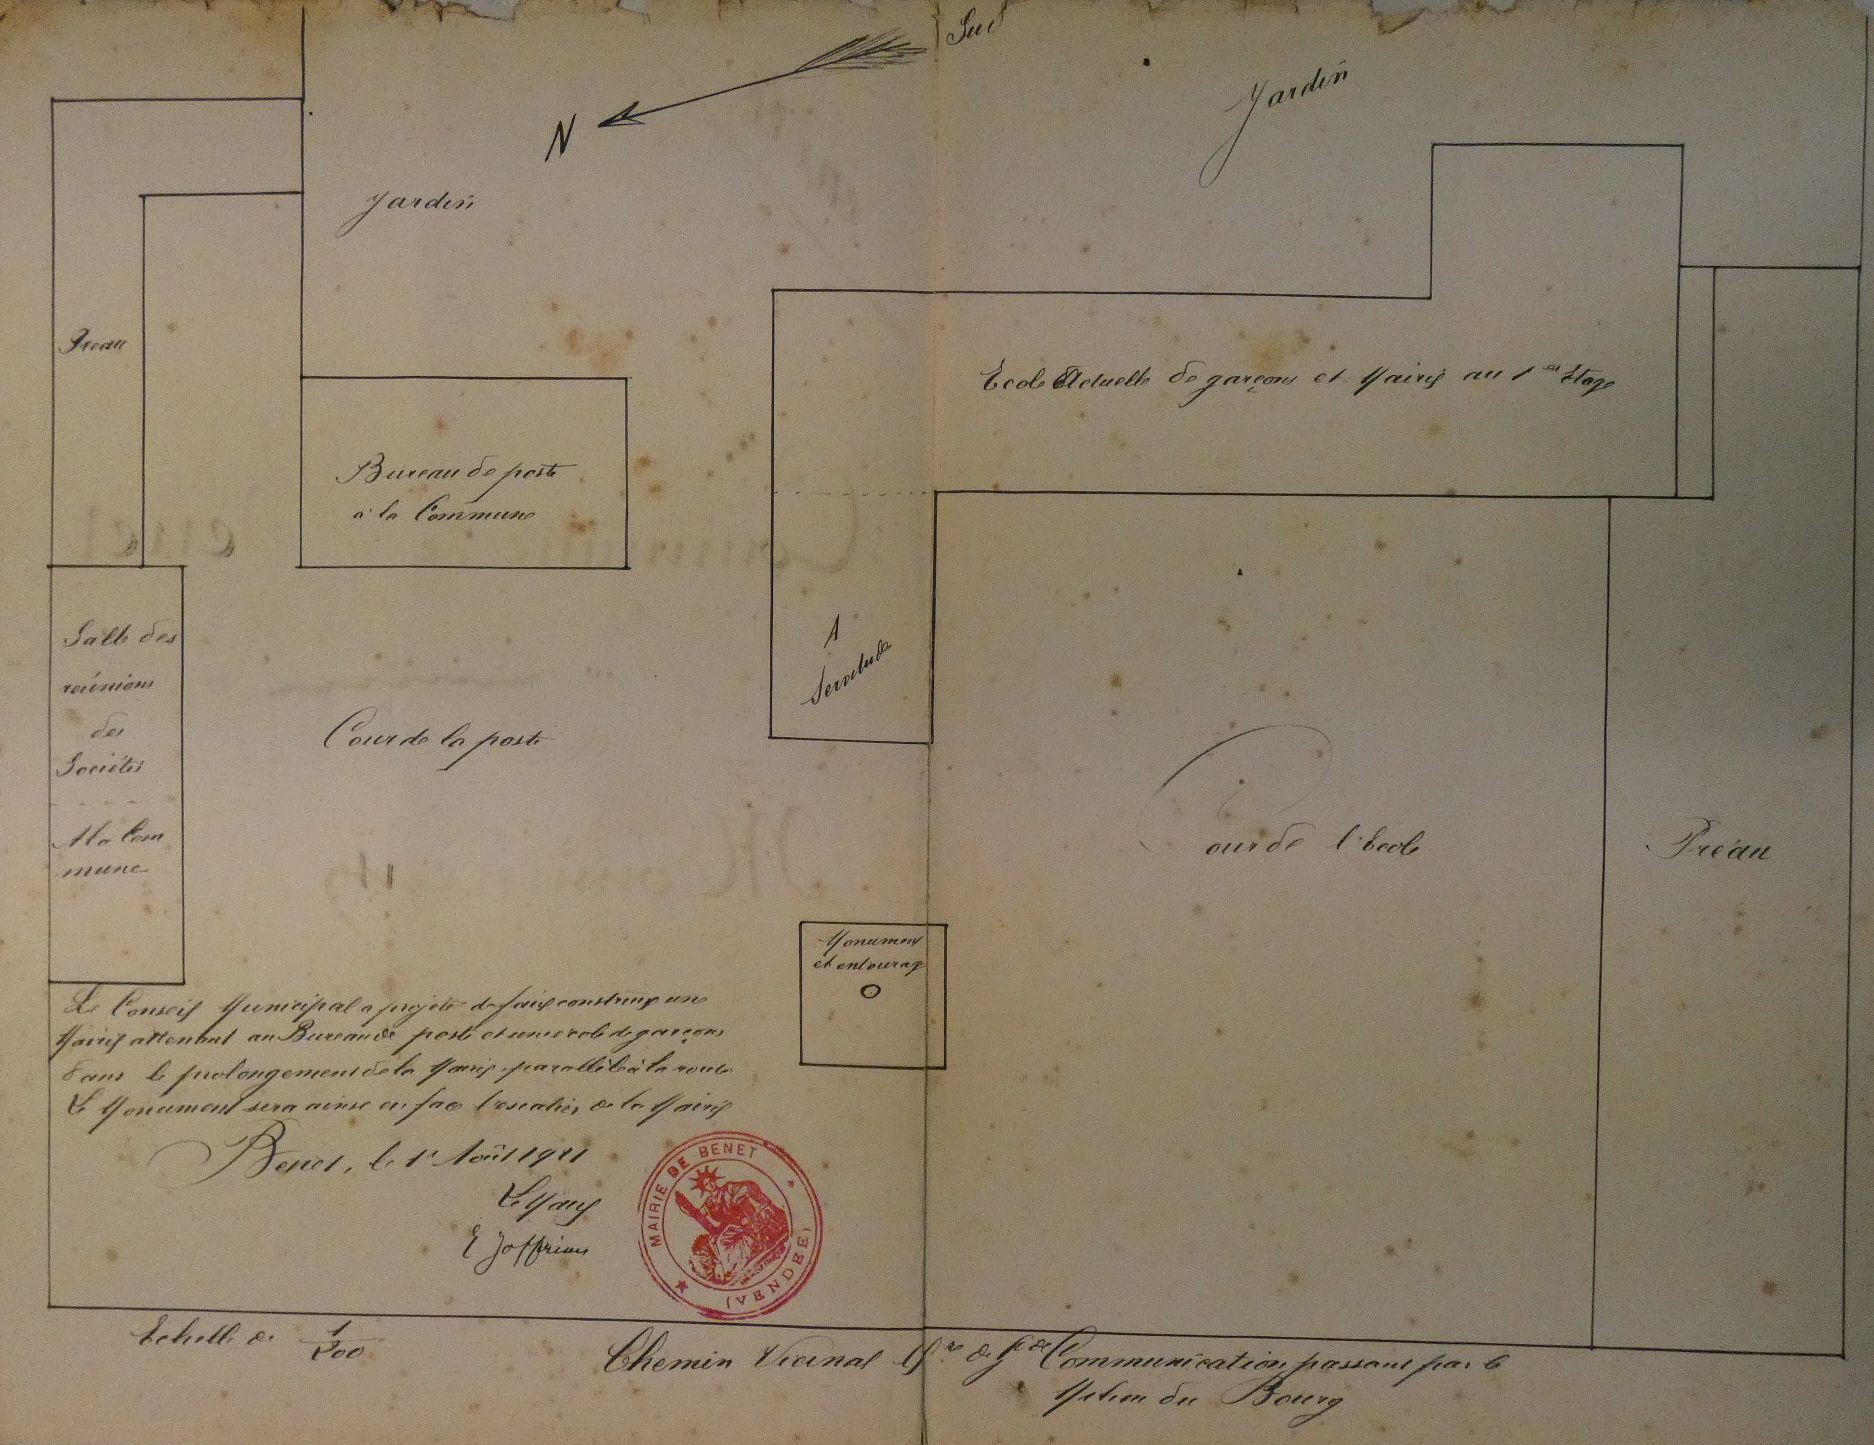 Sud
N
Jardin
Jardin
Préau
Ecole Actuelle de garçons et Mairie au 1er Etage
Bureau de poste
à la Commune
Salle des
réunions
des
Sociétés
A la Com
mune
A
Servitude
Cour de la poste
Cour de l'Ecole
Préau
Monument
et entourage
Le Conseil Municipal a projeté de faire construire une
Mairie attenant au Bureau de poste et une école de garçons
dans le prolongement de la Mairie, parallèle à la route
Le Monument sera ainsi en face l'escalier de la Mairie
Benet, le 1er Août 1921
Le Maire
MAIRIE DE BENET
(VENDÉE)
Echelle de 1/200
Chemin Vicinal de Gde Communication passant par le
Milieu du Bourg